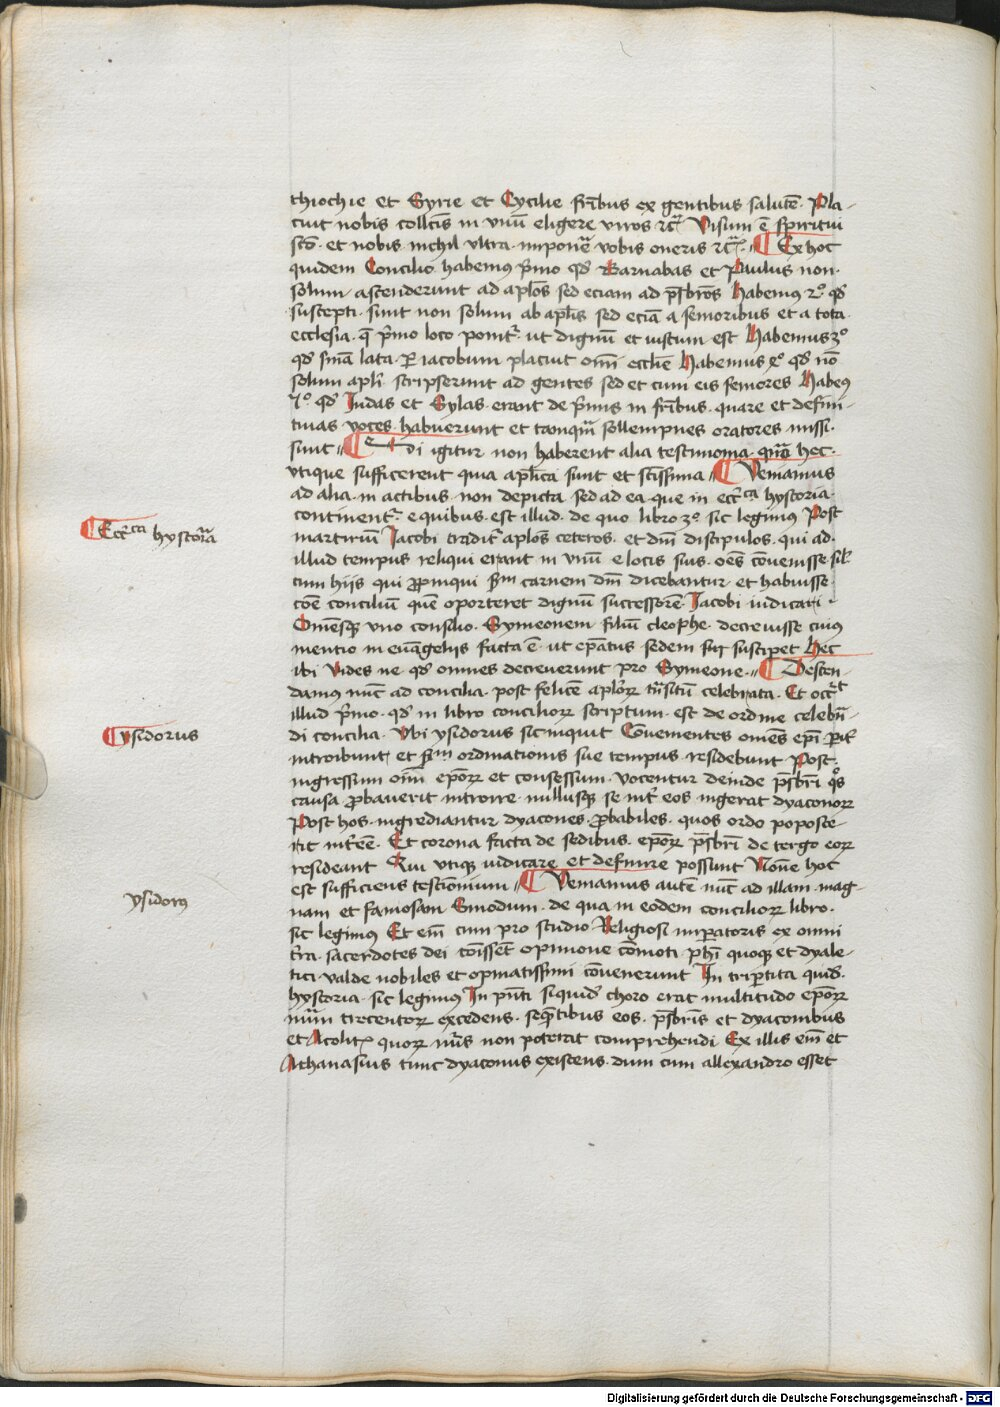 thiochie et Syrie et Cycilie fr̄ibus ex gentibus salutē. Pla-
cuit nobis collc̄is in vnū eligere viros ⁊cᷓ Visum ē spiritui
scō. et nobis nichil vltra imponē vobis oneris ⁊cᷓ. ¶ Ex hoc
quidem Concilio habemus p̄mo qd̛ Barnabas et Paulus non
solum ascenderunt ad ap̄los sed eciam ad p̄sbr̄os habemꝰ 2º. qd̛
suscepti sunt non solum ab ap̄lis sed eciā a senioribus et a tota
ecclesia. q̄ p̄mo loco ponit᷑. ut dignū et iustum est habemus 3º
qd̛ sn̄ia lata ꝑ iacobum placuit om̄i eccl̄ie habemus 4º qd̛ nō
solum apl̄i scripserunt ad gentes sed et cum eis seniores habemꝰ
5º. qd̛ Iudas et Sylas erant de p̄mis in fr̄ibus. quare et defini-
tiuas voces habuerunt et tanqm̄ sollempnes oratores missi
sunt ¶ Si igitur non haberent alia testimonia. qm̄ hec
vtique sufficerent quia apl̄ica sunt et sc̄issima ¶ Veniamus
ad alia in actibus non depicta sed ad ea que in ecc̄ᶜᵃ hystoria
continent᷑. e quibus est illud. de quo libro 3º. sic legimus Post
martiriū Iacobi tradit᷑ ap̄los ceteros. et dn̄i discipulos. qui ad
illud tempus reliqui erant in vnū e locis suis. oēs cōuenisse sil̄
cum hijs qui ꝓpinqui sm̄ carnem dn̄i dicebantur et habuisse
cōe conciliū quē oporteret dignū successorē Iacobi iudicari
Omēsqꝫ vno consilio. Symeonem filiū cleophe. decreuisse cuiꝰ
mentio in euāgelijs facta ē. ut ep̄atus sedem suscipet Hec
ibi Vides ne qd̛ omnes decreuerunt pro Symeone. ¶ Descen-
damus nūc ad concilia. post felicē ap̄lorꝫ tn̄situ celebrata. Et occ̄t
illud p̄mo. qd̛ in libro conciliorꝫ scriptum est de ordine celebrā-
di concilia. Vbi ysidorus sic inquit Conuenientes omēs ep̄i ꝑit̄
introibunt et sm̄ ordinationis sue tempus residebunt Post
ingressum om̄i ep̄orꝫ et consessum. vocentur deinde p̄sbr̄i qº̄s
causa ꝓbauerit introire. nullusqꝫ se int̄ eos ingerat dyaconorꝫ
Post hos. ingrediantur dyacones ꝓbabiles quos ordo poposce-
rit int̄ēē. Et corona facta de sedibus ep̄orꝫ p̄sbr̄i de tergo eorꝫ
resideant Qui vtiqꝫ iudicare et definire possunt Nōne hoc
est sufficiens testimonium ¶ Veniamus autē nūc ad illam mag-
nam et famosam Sinodum. de qua in eodem conciliorꝫ libro.
sic legimus Et em̄ cum pro studio Religiosi imꝑatoris ex omni
tr̄a. sacerdotes dei cōissent opinione cōmoti. ph̄i quoqꝫ et dyale-
tici valde nobiles et opinatissimi cōuenerunt In triꝑtita quid̛
hystoria. sic legimus In pn̄ti siquid̛ choro erat multitudo ep̄orꝫ
nūm trecentorꝫ excedens. seqn̄tibus eos. p̄sbr̄is et dyaconibus
et Acolit᷑ quorꝫ nūs non poterat comprehendi Ex illis em̄ et
Athanasius tunc dyaconus existens dum cum allexandro esset
¶ Ecc̄ᶜᵃ hystoria
¶ ysidorus
ysidorꝰ
Digitalisierung gefördert durch die Deutsche Forschungsgemeinschaft - DFG